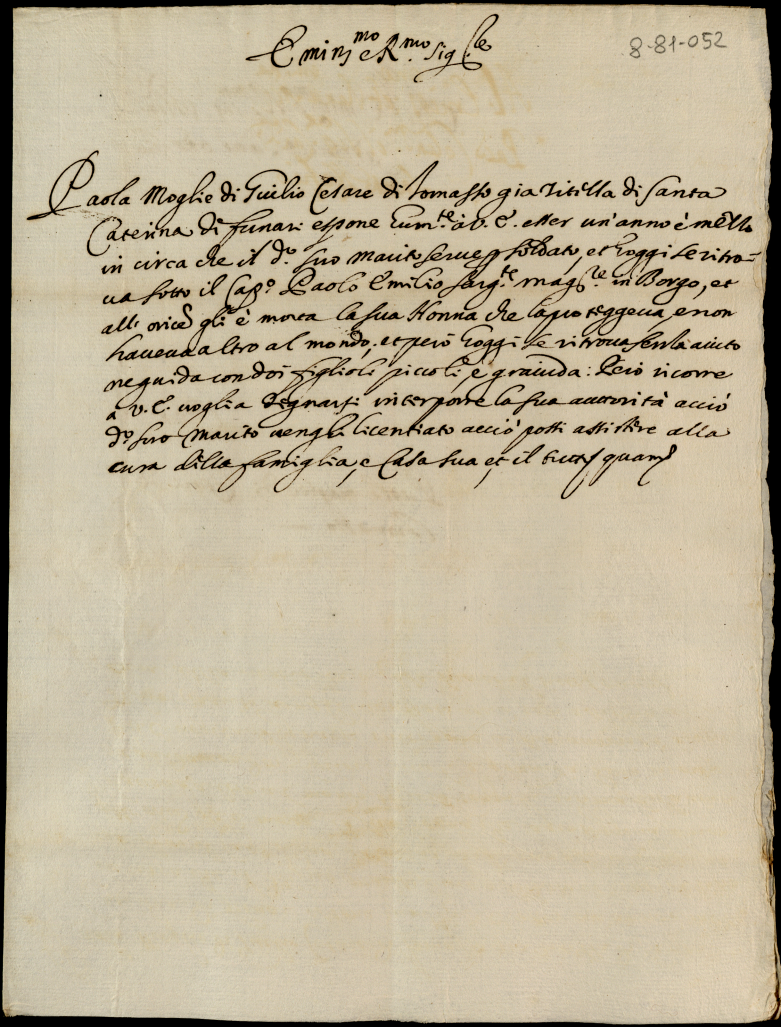 Emin.mo e R.mo Sig.re
8-81-052
Paola Moglie di Giulio Cesare di Tomasso gia Zitella di Santa
Caterina di funari espone hum.te à V. E. esser un'anno è mezzo
in circa che il d.o suo marito serue p soldato, et hoggi se ritro=
ua sotto il Cap.o Paolo Emilio sarg.te mag.re in Borgo, et
gli è morta la sua Nonna che la proteggeua, e non
haueua altro al mondo; et però hoggi se ritroua senza aiuto
ne guida con doi figlioli piccoli, e grauida: Però ricorre
a V. E. uoglia degnarsi interporre la sua auttorità acciò
d.o suo marito uenghi licentiato acciò possi assistere alla
cura della famiglia, e Casa sua et il tutto quam